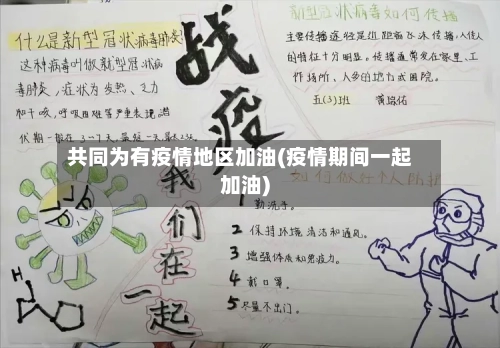 什么是新型冠状病毒肺炎
这种病毒叫做新型冠状病
毒肺炎,症状为发热、乏力
和干咳,呼吸困难等严重表现,潜
伏期一般在3一7天,最短一天,最长14天
战疫
我们在一起
新型冠状病毒如何传播
主要传播途径是近距离飞沫传播,人传人
的特征十分明显。传播通常发在家里、工
作场所、人多的地方或医院。
五(3)班
共同为有疫情地区加油(疫情期间一起
加油)
如何做好个人防护
勤洗手。
2 保持环境清洁和通风。
3 增强体质和免疫力。
4 戴口罩。
5 尽量不出门。
H